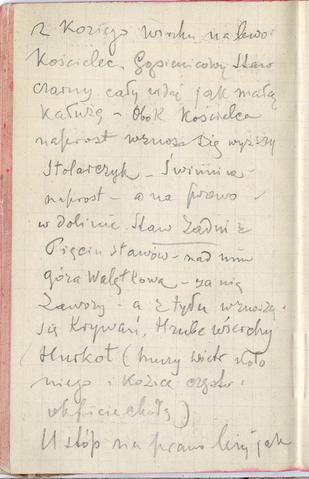 z Koziego wierchu na lewo:
Kościelec, Gąsienicowy Staw
czarny cały widać jak małą
kałużę – Obok Kościelca
naprost wznosi się wyższy
Stolarczyk – Świnnica –
naprost – a na prawo –
w dolinie Staw Zadni z
Pięciu stawów – nad nim
góra Walętkowa – za nią
Zawory – a z tyłu wznoszą
się Krywań, Hrube wierchy
Hurkot (
niego i Kozice często
)
U stóp na prawo leży jak